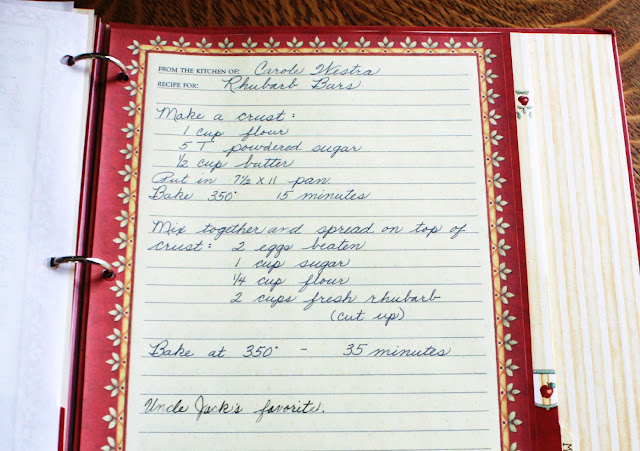 FROM THE KITCHEN OF: Carole Westra
RECIPE FOR: Rhubarb Bars
Make a crust:
1 cup flour
5 T powdered sugar
½ cup butter
Put in 7½ x 11 pan
Bake 350° 15 minutes
Mix together and spread on top of
crust: 2 eggs beaten
1 cup sugar
¼ cup flour
2 cups fresh rhubarb
(cut up)
Bake at 350° - 35 minutes
Uncle Jack's favorite.